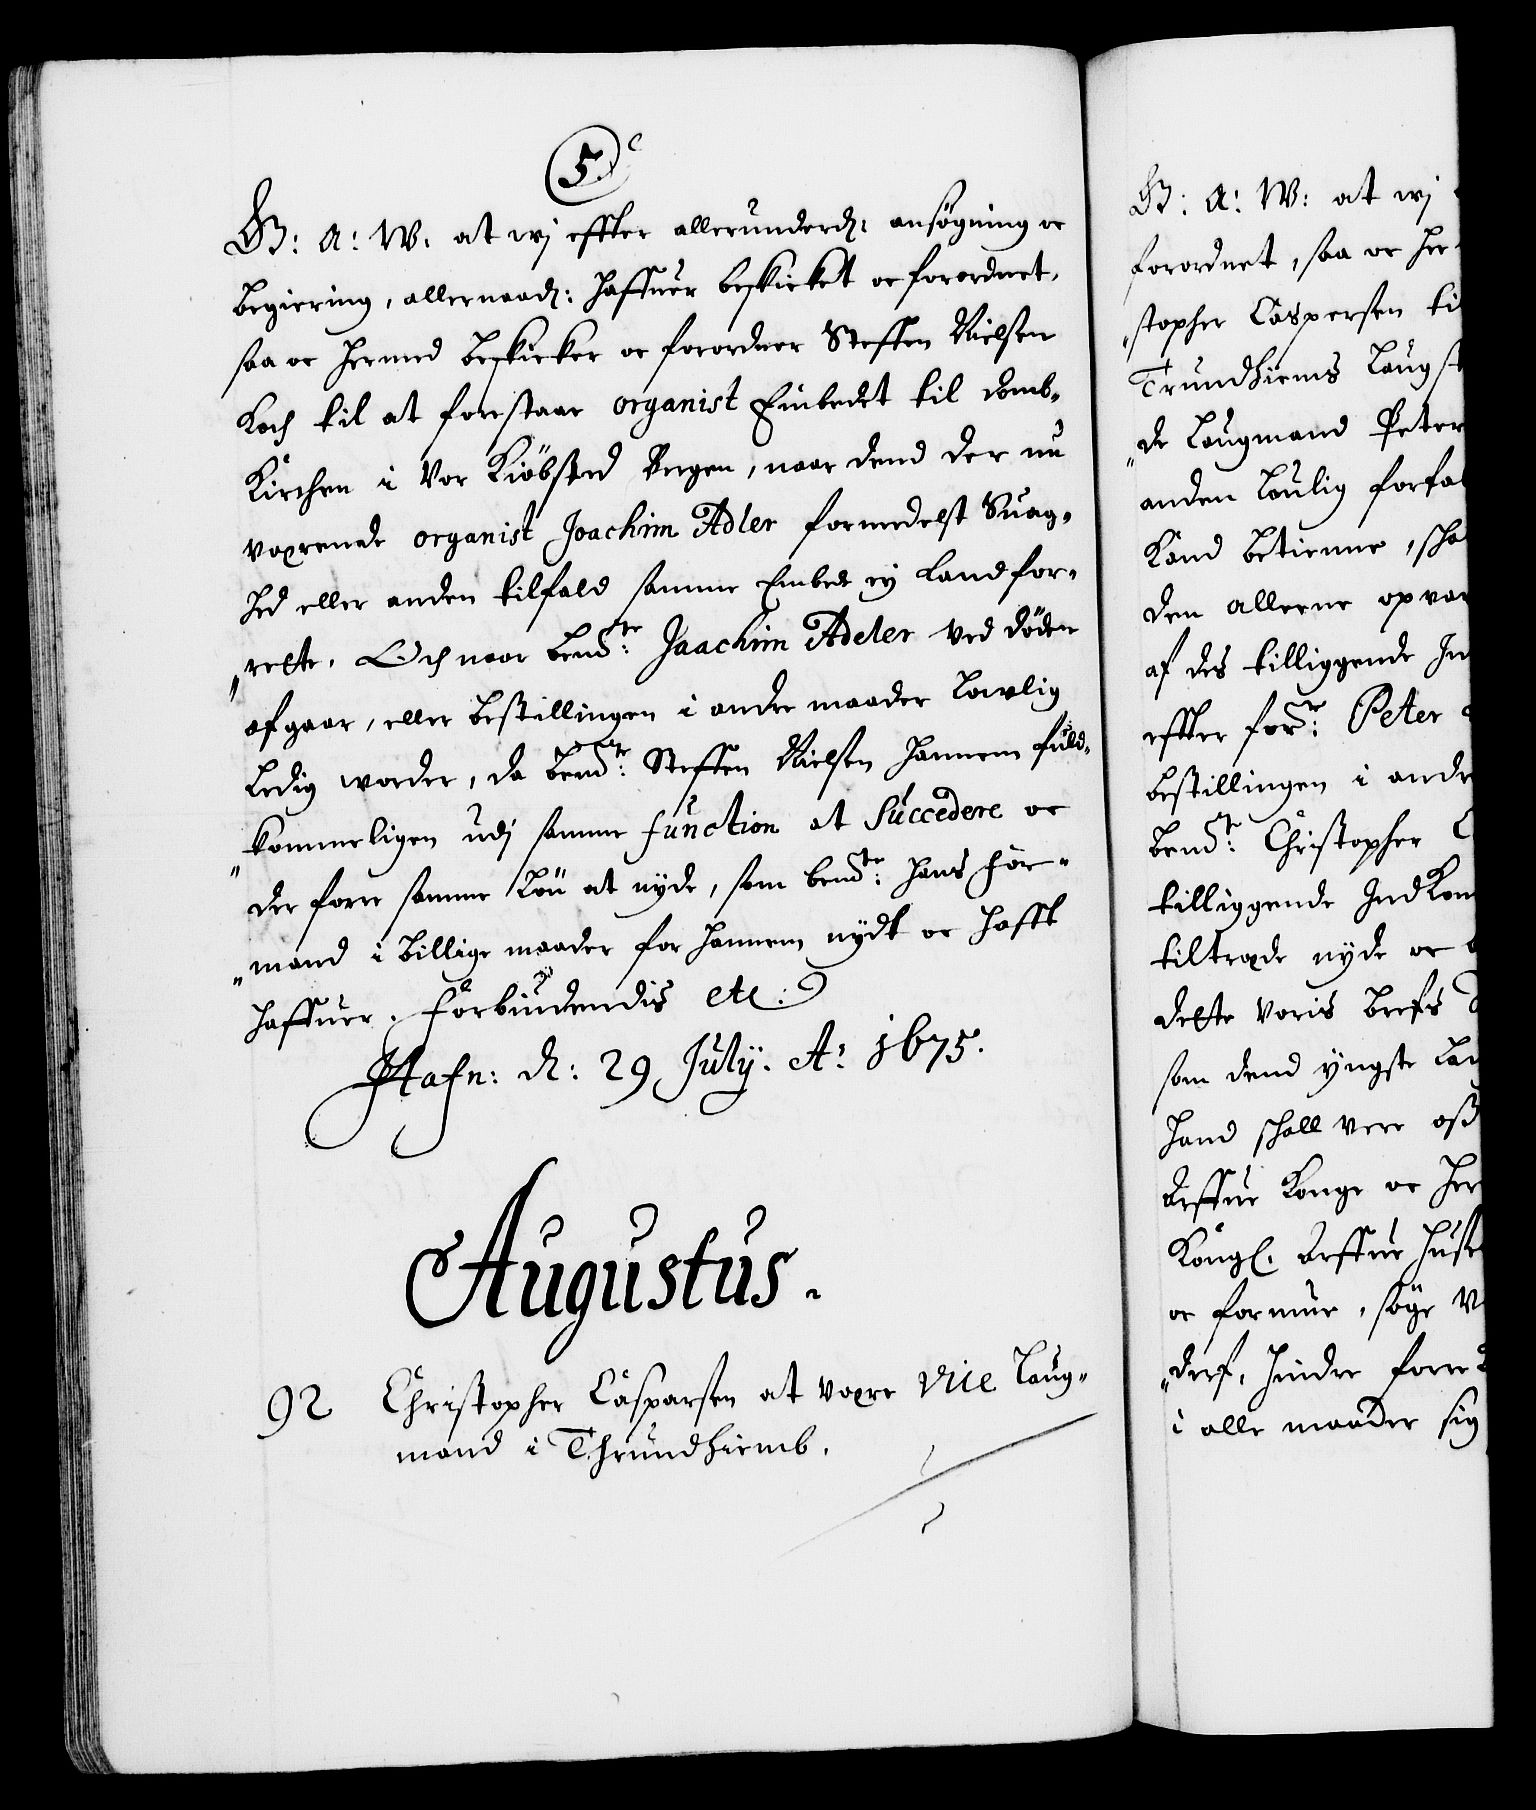 5.
G: A: W: at wj effter allerunderd: ansögning oc
begiering, allernaad: haffuer beskicket oc forordnet,
saa oc hermed beskicker oc forordner Steffen Nielsen
Koch til at forestaae organist Embedet til domb-
Kirchen i Vor Kiöbsted Bergen, naar dend der nu
værende organist Joachim Adler formedelst Suag-
hed eller anden tilfald samme Embede ej kand for-
"rette. Och naar bemdte: Joachim Adeler ved döden
afgaar, eller bestillingen i andre maader lovlig
ledig worder, da bemdte: Steffen Nielsen hannem fuld-
"kommeligen udj samme function at succedere oc
der forre samme Lön at nyde, som bemdte: hans For-
"mand i billige maader for hannem nydt oc hafft
haffuer. Forbiudendis etc:
Hafn: d: 29 July. Ao: 1675.
Augustus.
92 Christopher Casparsen at være Vice Laug-
mand i Thrundhiemb.
G: A: W: at wj
forordnet, saa oc her
"stopher Caspersen ti
Trundhiems Laugst
"de Laugmand Peter
anden Loulig forfal
kand betienne, sha
den allerne opvar
af des tilliggende In
effter forne: Peter
bestillingen i andre
bemdte: Christopher C
tilliggende Indkom
tiltræde nyde oc
dette voris brefs
som dend yngste Lau
hand shall vere oß
Arffue Konge oc Her
Kongl. Arffue Huse
oc formue, söge
"derf, hindre forre
i alle maader sig